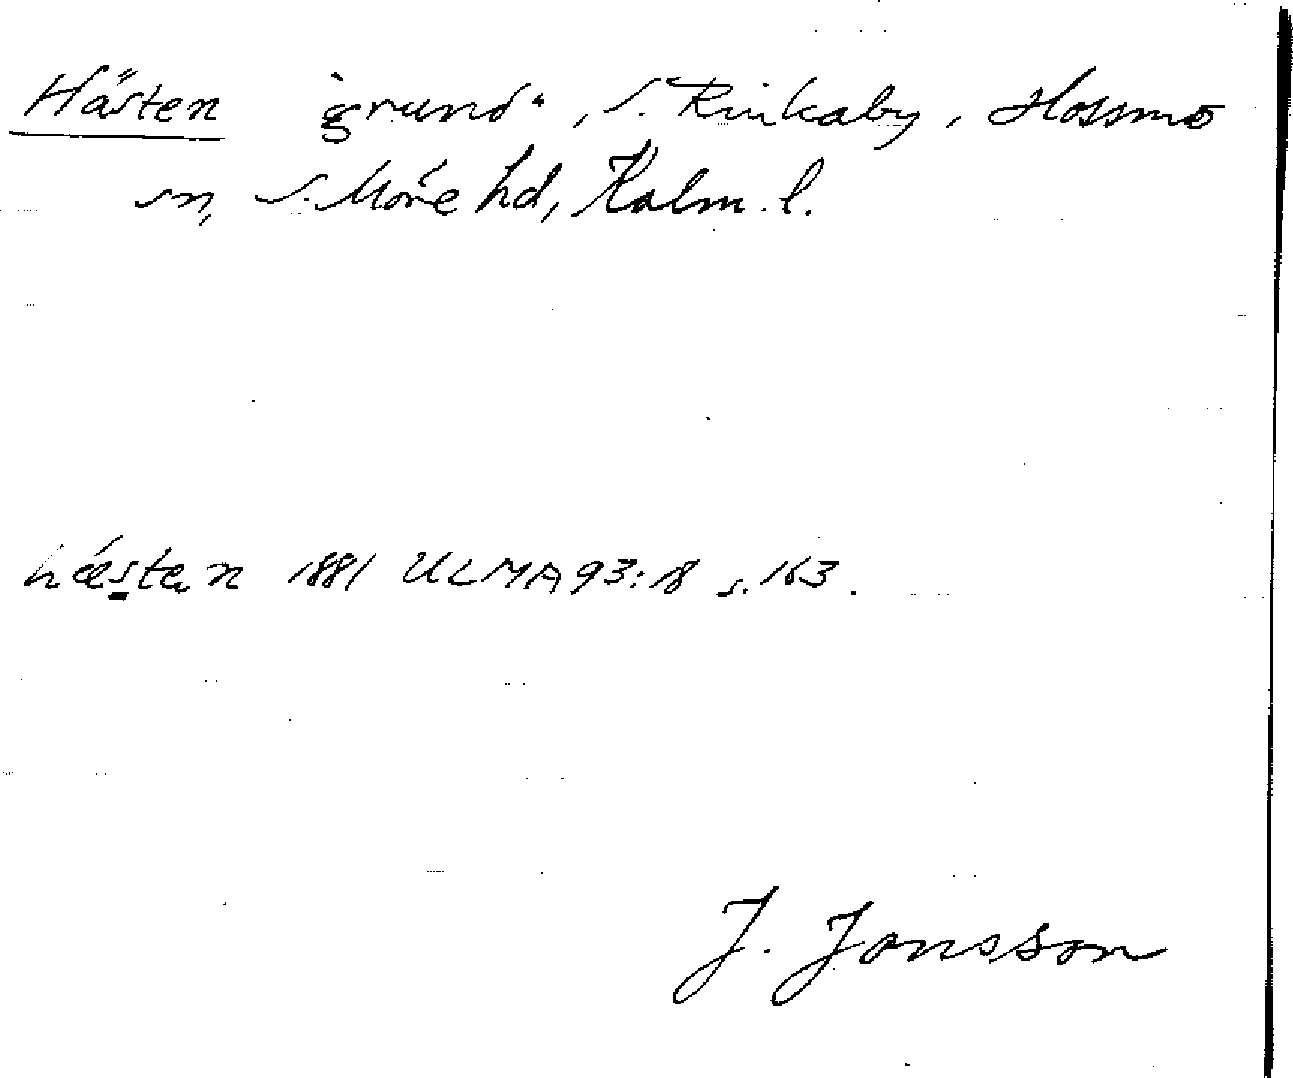 Hästen "grund", S. Rinkaby, Hossmo
sn, S. Möre hd, Kalm. l.
hästen 1881 ULMA 93:18 s. 163.
J. Jonsson